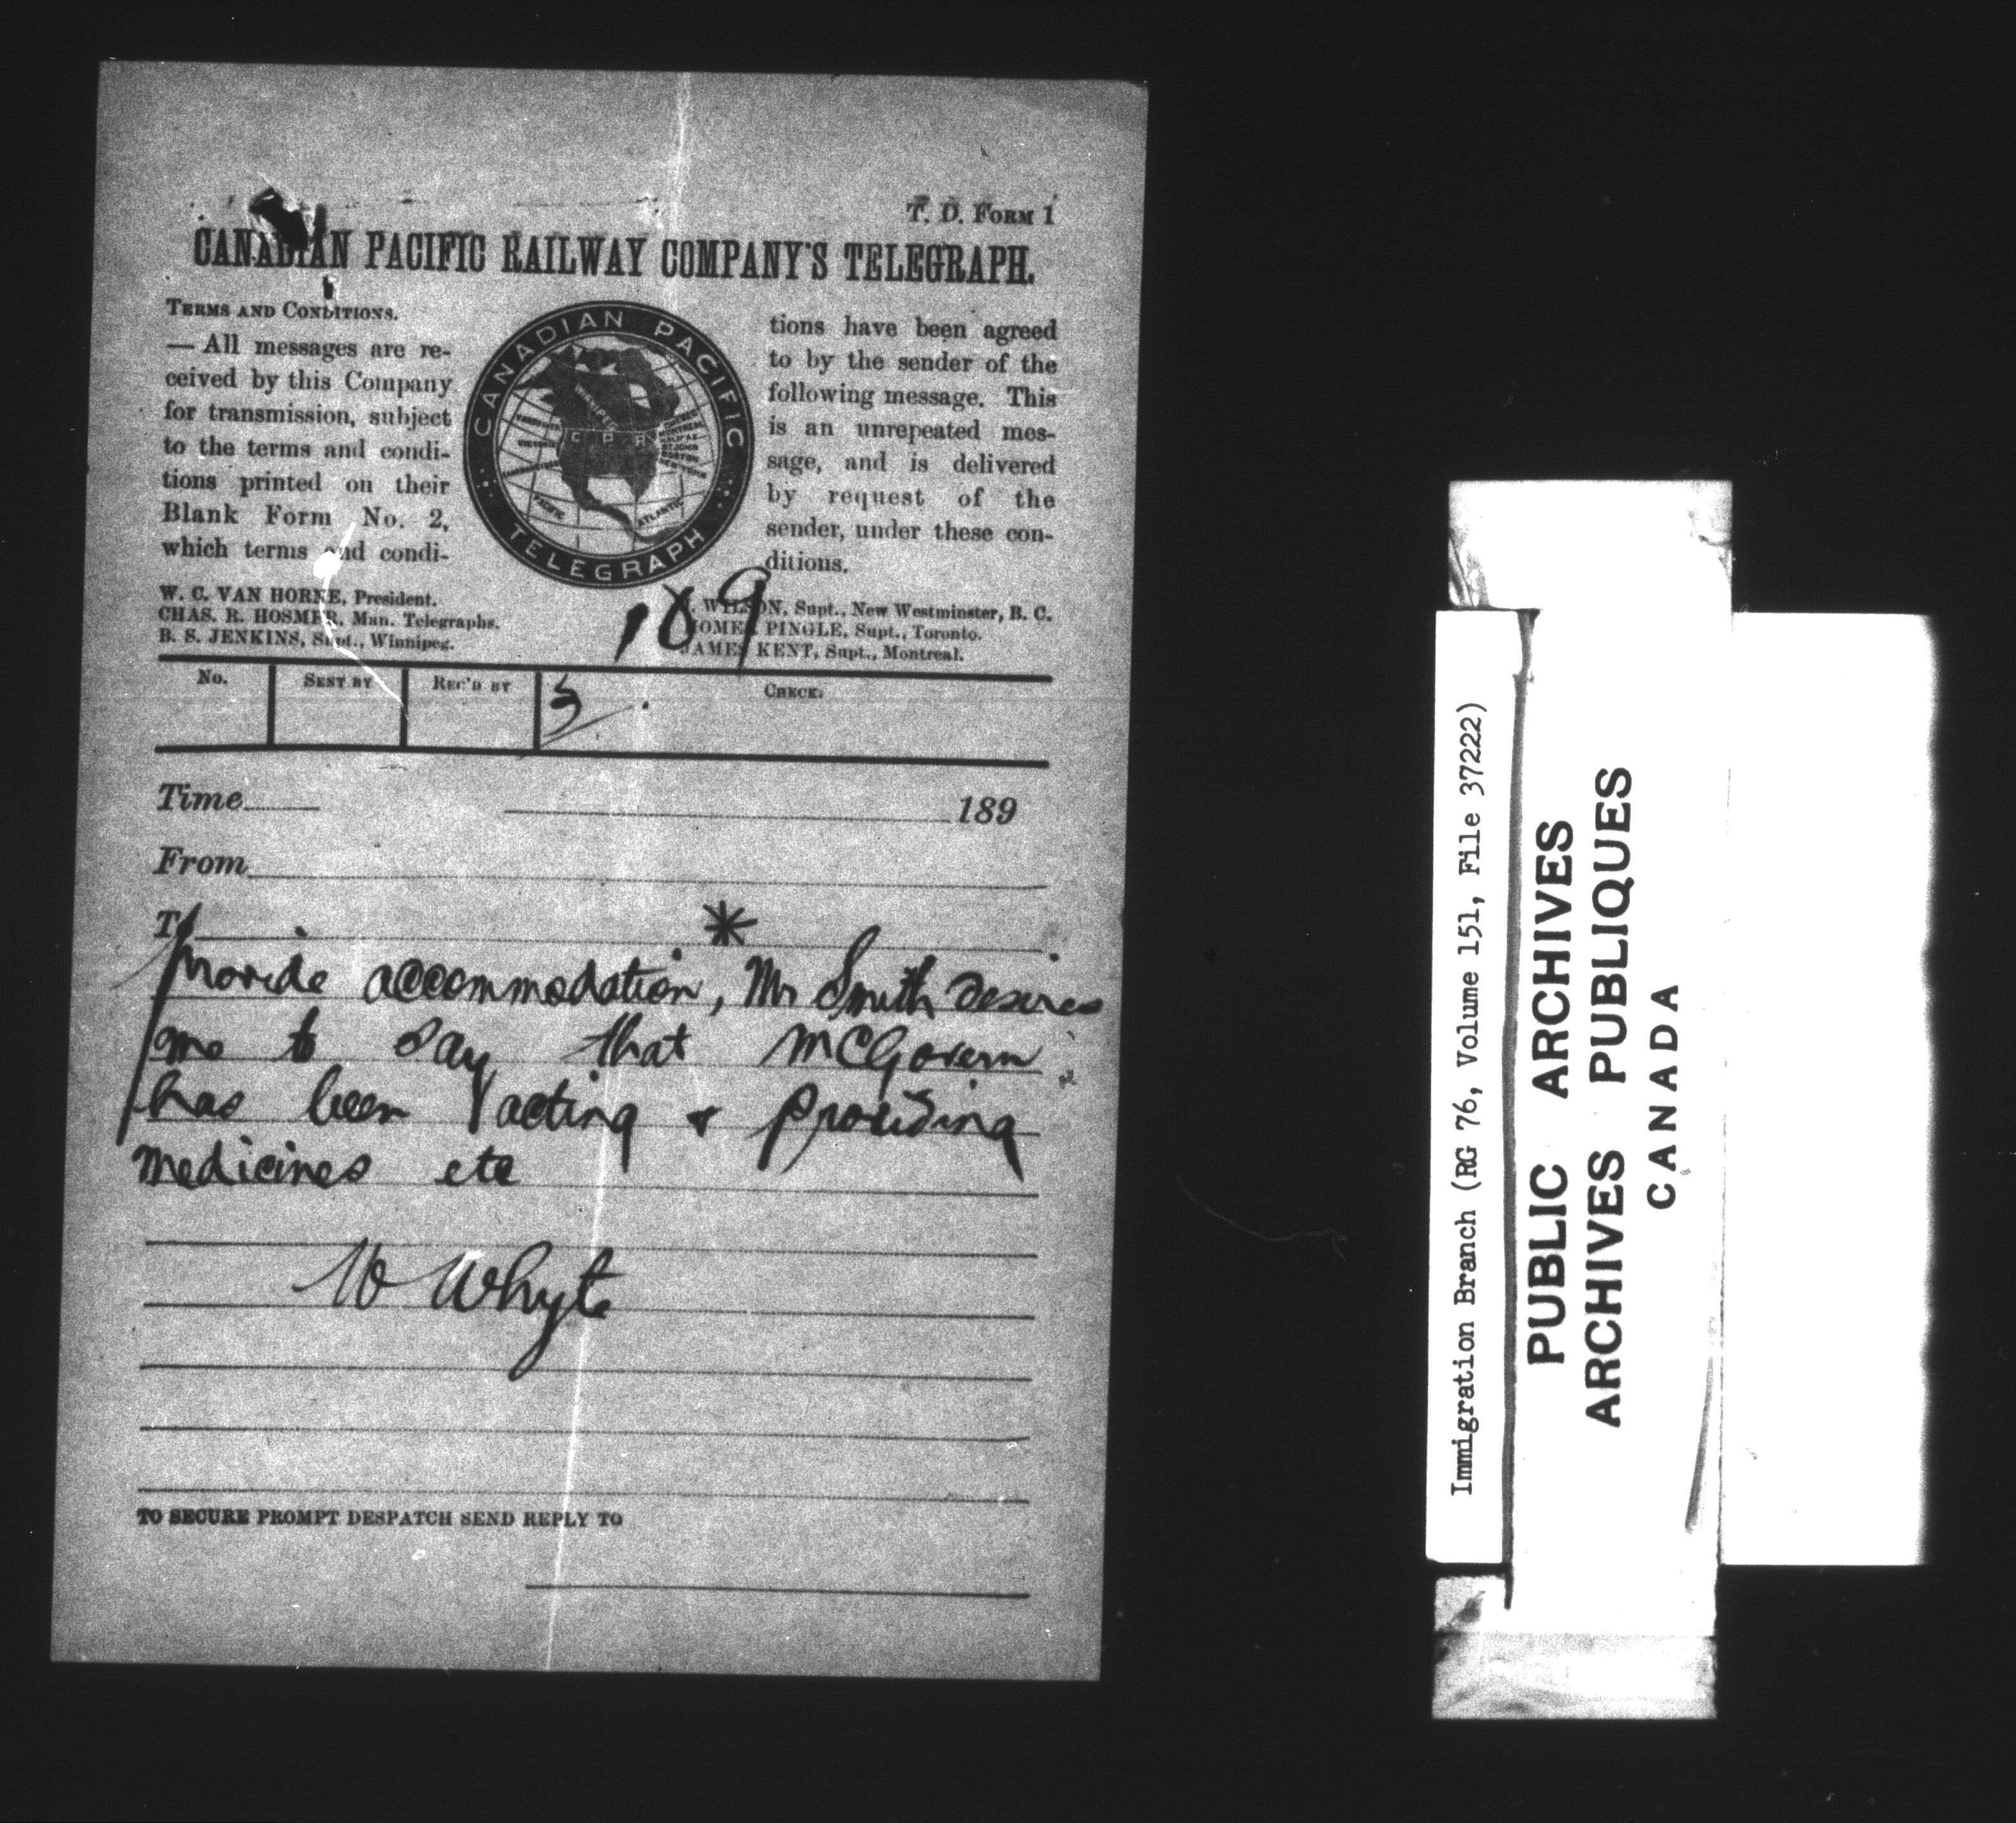 T. D. FORM 1
CANADIAN PACIFIC RAILWAY COMPANY'S TELEGRAPH.
TERMS AND CONDITIONS.
— All messages are re-
ceived by this Company
for transmission, subject
to the terms and condi-
tions printed on their
Blank Form No. 2,
which terms and condi-
CANADIAN PACIFIC
TELEGRAPH
WINNIPEG
C P R
VICTORIA
QUEBEC
MONTREAL
HALIFAX
ST JOHN
BOSTON
NEW YORK
PACIFIC
ATLANTIC
tions have been agreed
to by the sender of the
following message. This
is an unrepeated mes-
sage, and is delivered
by request of the
sender, under these con-
ditions.
W. C. VAN HORNE, President.
CHAS. R. HOSMER, Man. Telegraphs.
B. S. JENKINS, Supt., Winnipeg.
189
WILSON, Supt., New Westminster, B. C.
HOMER PINGLE, Supt., Toronto.
JAMES KENT, Supt., Montreal.
No. SENT BY REC'D BY CHECK.
3
Time 189
From
To
*
provide accommodation, Mr Smith desires
me to say that McGovern
has been acting & providing
medicines etc
W Whyte
TO SECURE PROMPT DESPATCH SEND REPLY TO
Immigration Branch (RG 76, Volume 151, File 37222)
PUBLIC ARCHIVES
ARCHIVES PUBLIQUES
CANADA